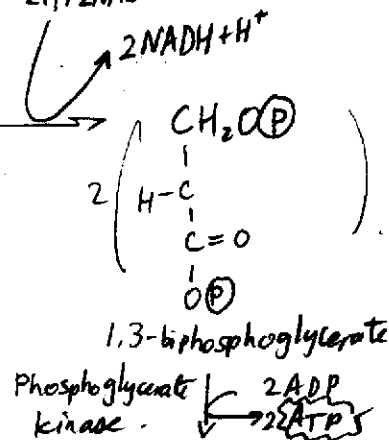 2NADH+H⁺
CH₂OⓅ
2
H-C
C=O
OⓅ
1,3-biphosphoglycerate
Phosphoglycerate
2ADP
kinase.
2ATP